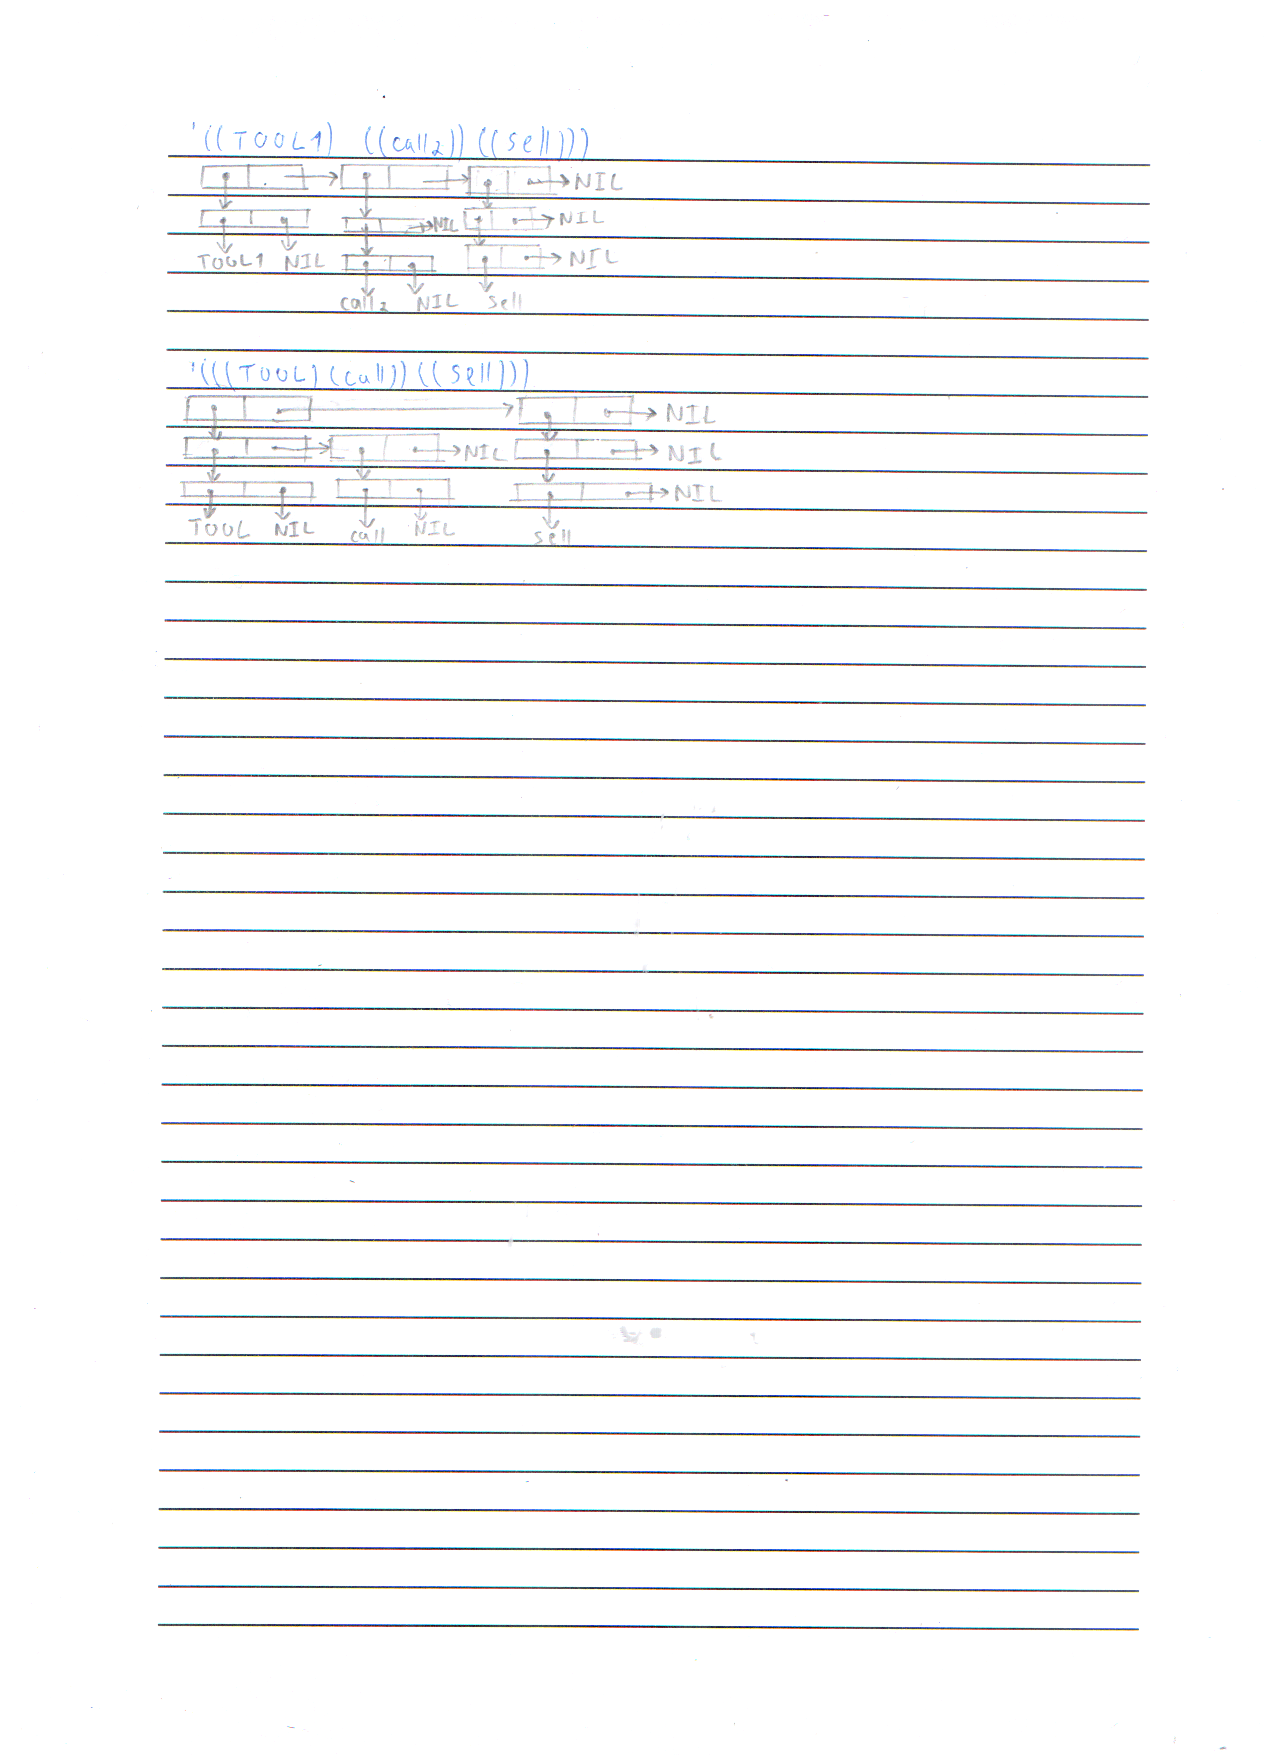 '((TOOL1) ((call2)) ((sell)))
NIL
NIL NIL
TOOL1 NIL NIL
call2 NIL sell
'(((TOOL)(call)) ((sell)))
NIL
NIL NIL
NIL
TOOL NIL call NIL sell